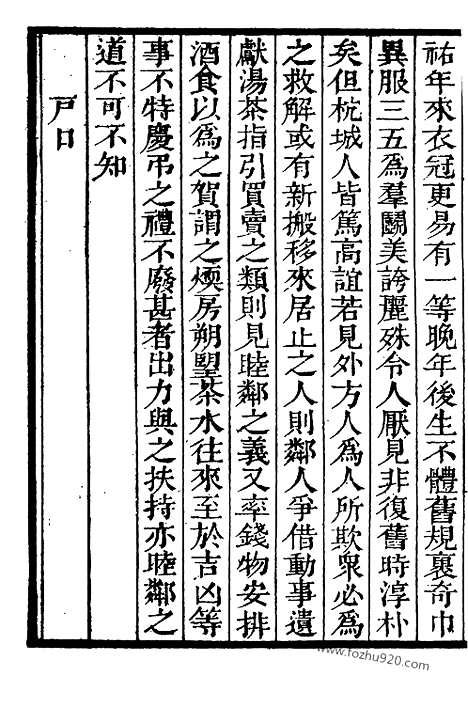 祐年來衣冠更易有一等晚年後生不體舊規裹奇巾
異服三五爲羣鬭美誇麗殊令人厭見非復舊時淳朴
矣但杭城人皆篤高誼若見外方人爲人所欺衆必爲
之救解或有新搬移來居止之人則鄰人爭借動事遺
獻湯茶指引買賣之類則見睦鄰之義又率錢物安排
酒食以爲之賀謂之煖房朔望茶水往來至於吉凶等
事不特慶弔之禮不廢甚者出力與之扶持亦睦鄰之
道不可不知
戸口
www.fozhu920.com